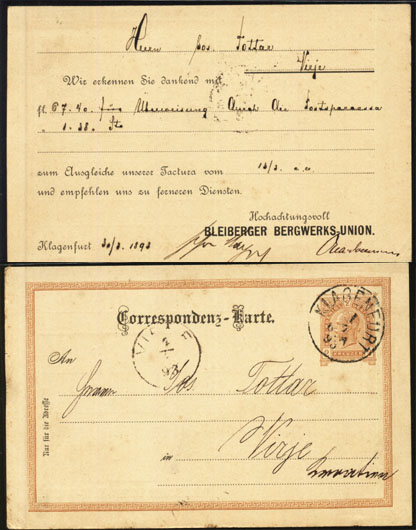 Herrn Jos. Tottar
Virje
Wir erkennen Sie dankend mit
fl. 67.40 für Überweisung durch die Postsparcassa
" 1.38. Sto
zum Ausgleiche unserer Factura vom 13/3. a.c.
und empfehlen uns zu ferneren Diensten.
Hochachtungsvoll
BLEIBERGER BERGWERKS-UNION.
Klagenfurt 30/3. 1893
Correspondenz-Karte.
KLAGENFURT
An
Herrn Jos Tottar
Virje
in
Croatien
Nur für die Adresse